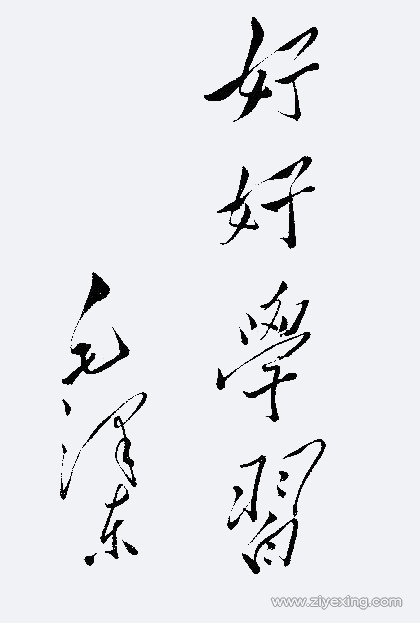 好好學習
毛澤东
www.ziyexing.com